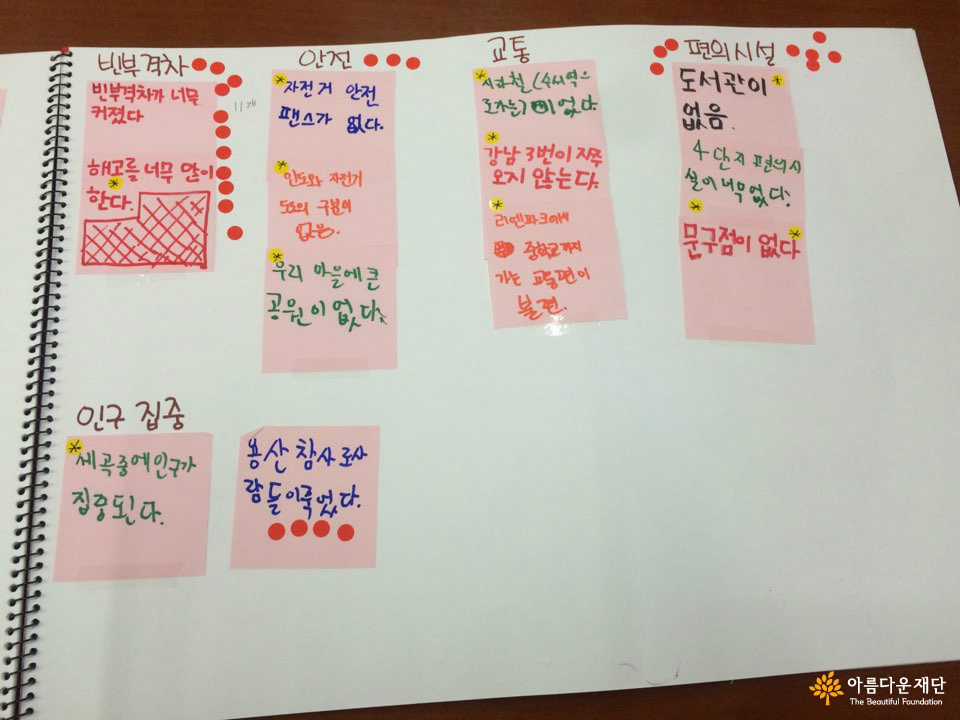 빈부격차
빈부격차가 너무
커졌다
해고를 너무 많이
한다.
11개
안전
자전거 안전
팬스가 없다.
인도와 자전거
도로의 구분이
없음.
우리 마을에 큰
공원이 없다
교통
지하철(수서역은
없다
강남 3번이 자주
오지 않는다.
리엔파크에서
중학교까지
가는 교통편이
불편.
편의시설
도서관이
없음.
4단지 편의시
설이 너무 없다.
문구점이 없다
인구 집중
세곡중에 인구가
집중된다.
용산 참사로 사
람들이 죽었다.
아름다운재단
The Beautiful Foundation